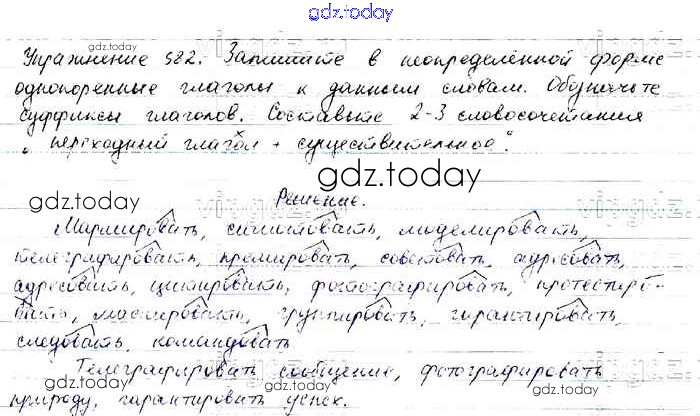 gdz.today
Упражнение 582. Запишите в неопределённой форме
gdz.today
однокоренные глаголы к данным словам. Обозначьте
суффиксы глаголов. Составьте 2-3 словосочетания
„ переходный глагол + существительное".
gdz.today
Решение.
gdz.today
Маршировать, сигналить, моделировать,
телеграфировать, премировать, советовать, адресовать,
gdz.today
адресовать, цитировать, фотографировать, протестиро-
вать, массировать, группировать, гарантировать,
следовать, командовать
gdz.today
Телеграфировать сообщение, фотографировать
gdz.today
gdz.today
природу, гарантировать успех.